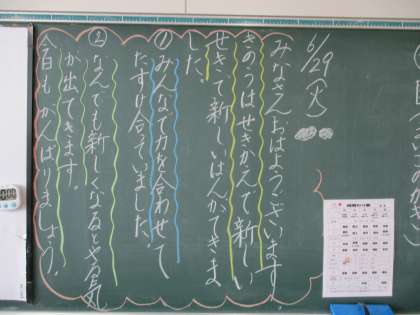 6/29(火)
みなさんおはようございます。
きのうはせきがえで、新しい
せきで新しいはんができま
した。
①みんなで力を合わせて
たすけ合っていました。
②なんでも新しくなるとやる気
が出てきます。
今日もがんばりましょう。